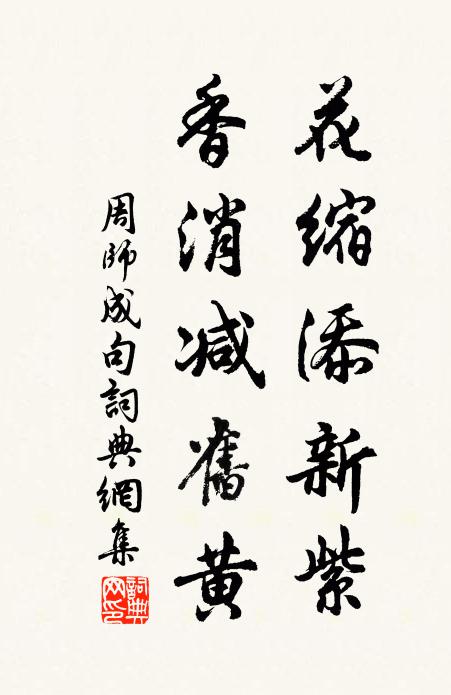 花缩添新紫
香消减舊黄
周師成句詞典網集
詞典網印